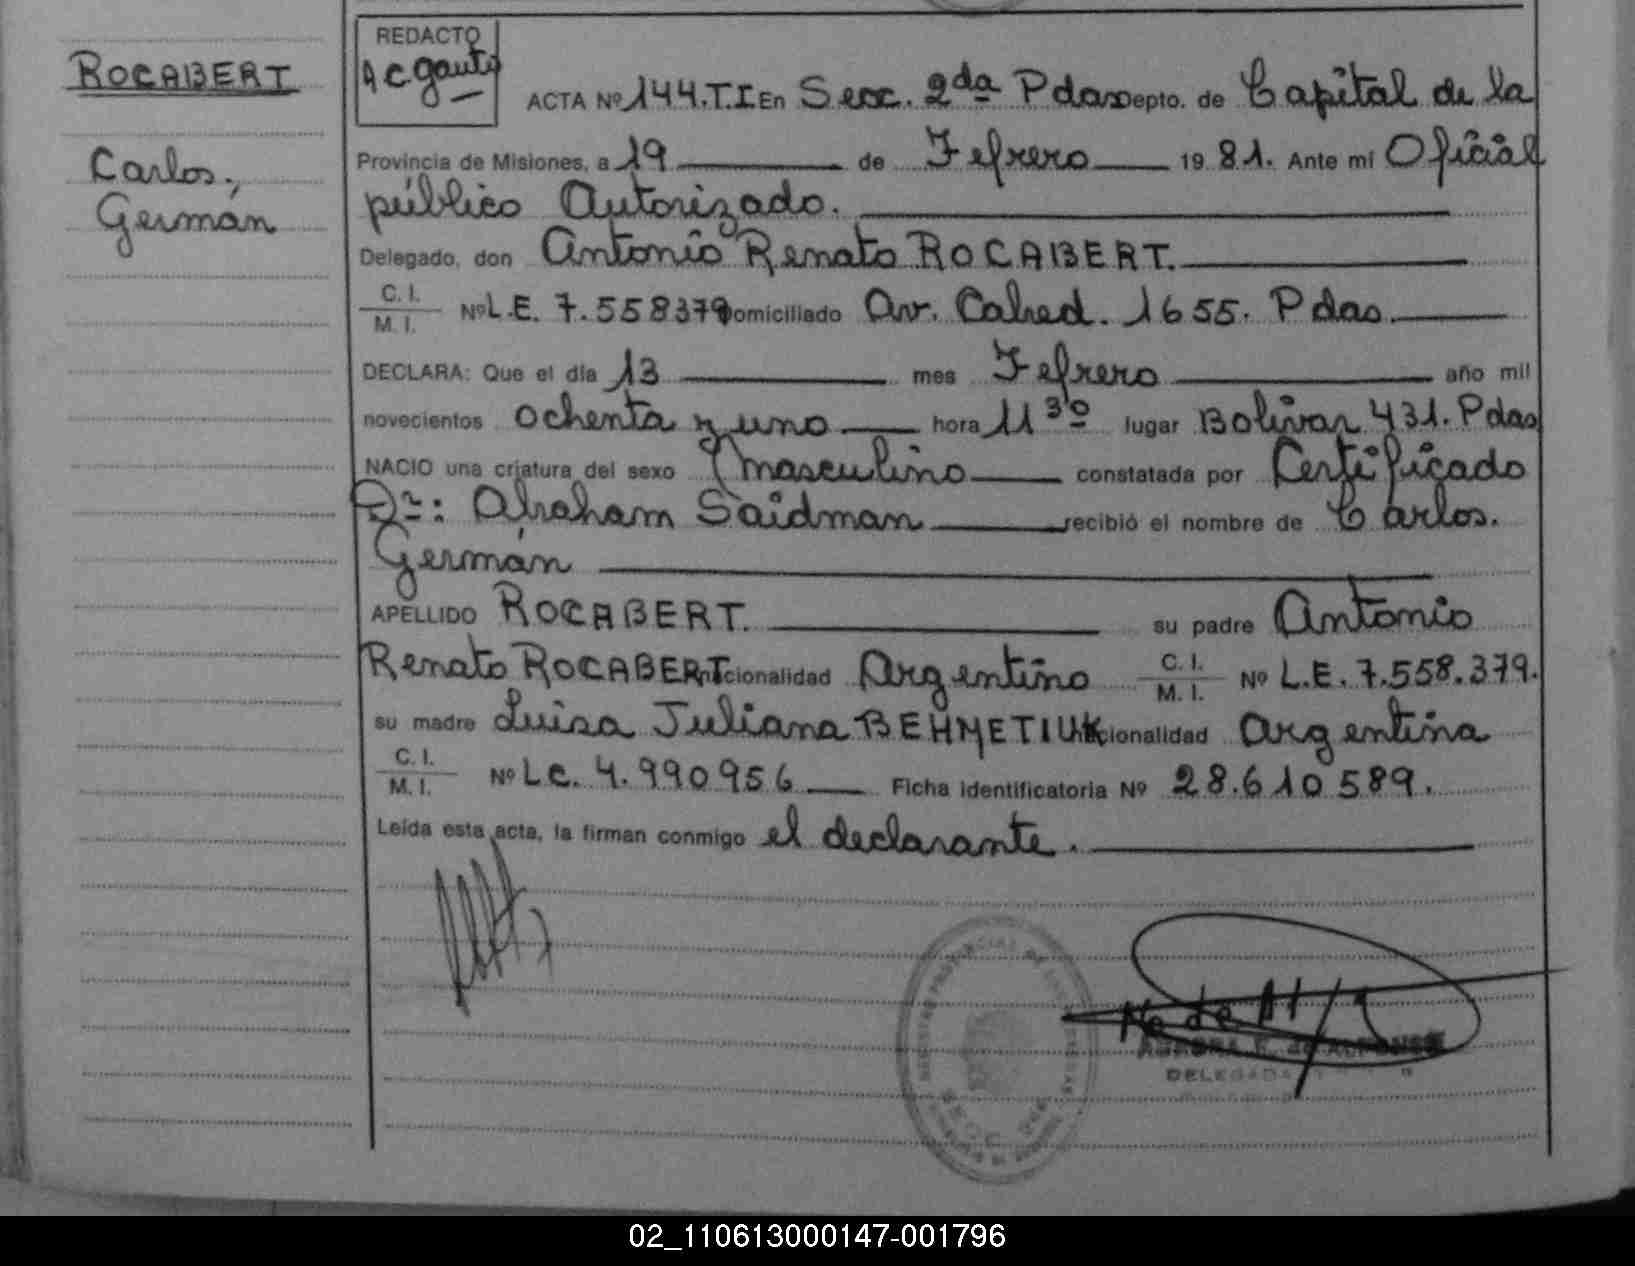 ROCABERT
Carlos,
Germán
REDACTO
ACTA Nº 144.T.I En Secc. 2da Pdas Depto. de Capital de la
Provincia de Misiones, a 19 de Fefrero 1981. Ante mi Oficial
público Autorizado.
Delegado, don Antonio Renato ROCABERT.
C. I.
M. I. Nº L.E. 7.558379 Domiciliado Av. Cabred. 1655. Pdas.
DECLARA: Que el día 13 mes Fefrero año mil
novecientos ochenta y uno hora 11 30 lugar Bolivar 431. Pdas
NACIO una criatura del sexo masculino constatada por Certificado
Dr: Abraham Saidman recibió el nombre de Carlos.
Germán
APELLIDO ROCABERT. su padre Antonio
Renato ROCABERT nacionalidad Argentino C. I.
M. I. Nº L.E. 7.558.379.
su madre Luisa Juliana BEHMETIUK nacionalidad Argentina
C. I.
M. I. Nº LC. 4.990956 Ficha identificatoria Nº 28.610589.
Leída esta acta, la firman conmigo el declarante.
DELEGADA
02_110613000147-001796